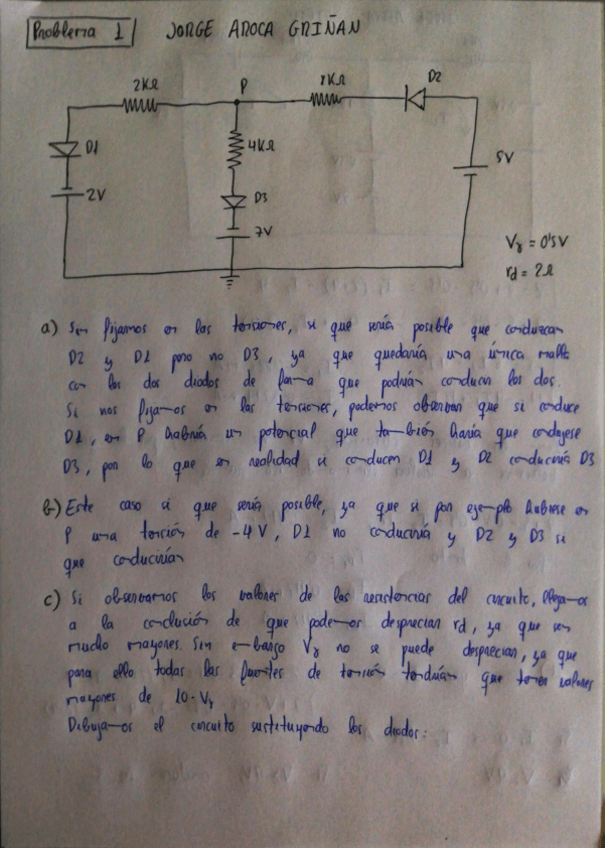 Problema 1 JORGE AROCA GRIÑAN
2KΩ P 1KΩ D2
D1 4KΩ 5V
2V D3
7V
Vγ = 0'5V
rd = 2Ω
a) Sin fijarnos en las tensiones, si que sería posible que conduzcan
D2 y D1 pero no D3, ya que quedaría una única malla
con los dos diodos de forma que podrían conducir los dos.
Si nos fijamos en las tensiones, podemos observar que si conduce
D1, en P habría un potencial que también haría que condujese
D3, por lo que en realidad si conducen D1 y D2 conduciría D3
b) Este caso si que sería posible, ya que si por ejemplo hubiese en
P una tensión de -4V, D1 no conduciría y D2 y D3 si
que conducirían
c) Si observamos los valores de las resistencias del circuito, llegamos
a la conclusión de que podemos despreciar rd, ya que son
mucho mayores. Sin embargo Vγ no se puede despreciar, ya que
para ello todas las fuentes de tensión tendrían que tener valores
mayores de 10·Vγ
Dibujamos el circuito sustituyendo los diodos: